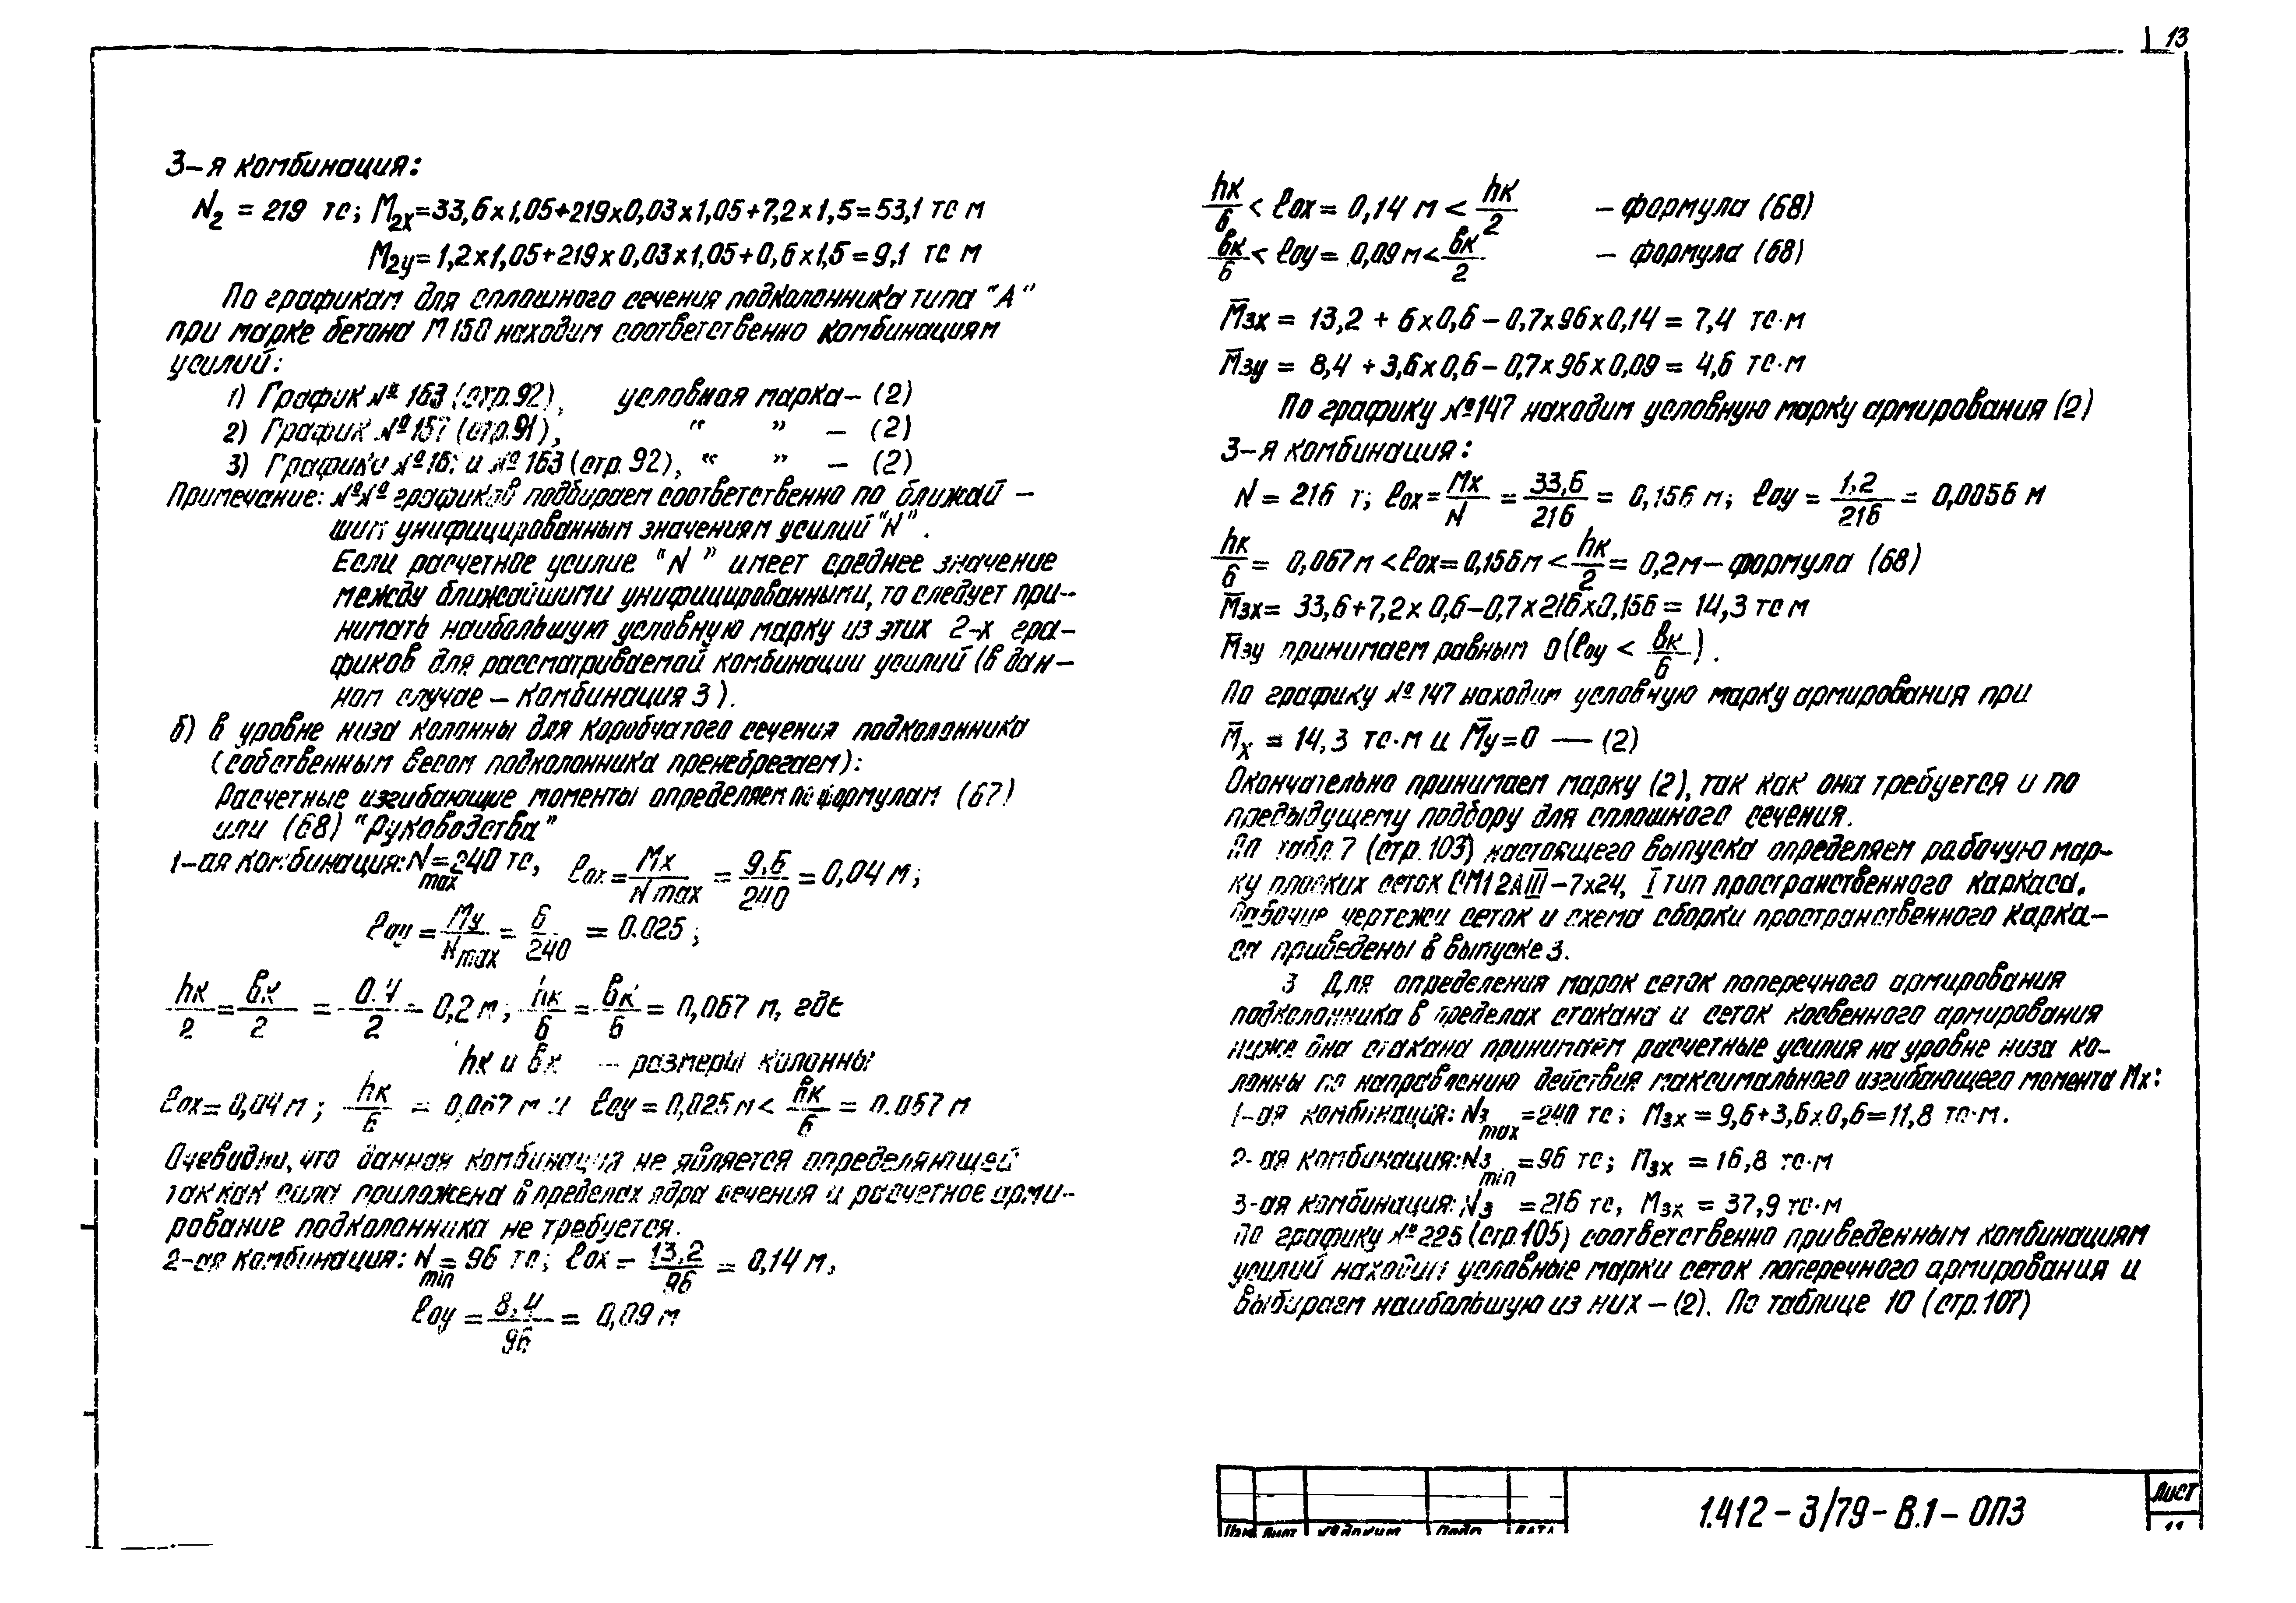 13
3-я комбинация:
N₂ = 219 тс; M₂ₓ=33,6х1,05+219х0,03х1,05+7,2х1,5=53,1 тс м
M₂у=1,2х1,05+219х0,03х1,05+0,6х1,5=9,1 тс м
По графикам для сплошного сечения подколонника типа "А"
при марке бетона М150 находим соответственно комбинациям
усилий:
1) График №163 (стр.92), условная марка – (2)
2) График №157 (стр.91), " " – (2)
3) Графики и №163 (стр.92), " " – (2)
Примечание: №№ графиков подбираем соответственно по ближай-
шим унифицированным значениям усилий "N".
Если расчетное усилие "N" имеет среднее значение
между ближайшими унифицированными, то следует при-
нимать наибольшую условную марку из этих 2-х гра-
фиков для рассматриваемой комбинации усилий (в дан-
ном случае – комбинация 3).
б) в уровне низа колонны для коробчатого сечения подколонника
(собственным весом подколонника пренебрегаем):
Расчетные изгибающие моменты определяем по формулам (67)
или (68) "Руководства"
1-ая комбинация: N max = 240 тс, eох = Mх/N max = 9,6/240 = 0,04 м;
eоу = Mу/N max = 6/240 = 0.025;
hк/2 = вк/2 = 0.4/2 = 0,2 м; hк/6 = вк/6 = 0,067 м, где
hк и вк – размеры колонны
eох = 0,04 м; hк/6 = 0,067 м и eоу = 0,025 м < hк/6 = 0.067 м
Очевидно, что данная комбинация не является определяющей
так как сила приложена в пределах ядра сечения и расчетное арми-
рование подколонника не требуется.
2-ая комбинация: N min = 96 тс; eох = 13,2/96 = 0,14 м,
eоу = 8,4/96 = 0,09 м
hк/6 < eох = 0,14 м < hк/2 – формула (68)
вк/6 < eоу = 0,09 м < вк/2 – формула (68)
M̄₃х = 13,2 + 6х0,6 – 0,7х96х0,14 = 7,4 тс·м
M̄₃у = 8,4 + 3,6х0,6 – 0,7х96х0,09 = 4,6 тс·м
По графику №147 находим условную марку армирования (2)
3-я комбинация:
N = 216 т; eох = Mх/N = 33,6/216 = 0,156 м; eоу = 1,2/216 = 0,0056 м
hк/6 = 0,067 м < eох = 0,156 м < hк/2 = 0,2 м – формула (68)
M̄₃х = 33,6+7,2х0,6–0,7х216х0,156 = 14,3 тс м
M̄₃у принимаем равным 0 (eоу < вк/6).
По графику №147 находим условную марку армирования при
M̄х = 14,3 тс·м и M̄у=0 — (2)
Окончательно принимаем марку (2), так как она требуется и по
предыдущему подбору для сплошного сечения.
По табл.7 (стр.103) настоящего выпуска определяем рабочую мар-
ку плоских сеток СМ12АIII–7х24, I тип пространственного каркаса.
Рабочие чертежи сеток и схема сборки пространственного карка-
са приведены в выпуске 3.
3 Для определения марок сеток поперечного армирования
подколонника в пределах стакана и сеток косвенного армирования
ниже дна стакана принимаем расчетные усилия на уровне низа ко-
лонны по направлению действия максимального изгибающего момента Мх:
1-ая комбинация: N₃ max = 240 тс; M₃х = 9,6+3,6х0,6=11,8 тс·м.
2-ая комбинация: N₃ min = 96 тс; M₃х = 16,8 тс·м
3-ая комбинация: N₃ = 216 тс, M₃х = 37,9 тс·м
По графику №225 (стр.105) соответственно приведенным комбинациям
усилий находим условные марки сеток поперечного армирования и
выбираем наибольшую из них – (2). По таблице 10 (стр.107)
1.412 – 3/79 – В.1 – ОПЗ
Лист
11
Изм Лист № докум Подп Дата